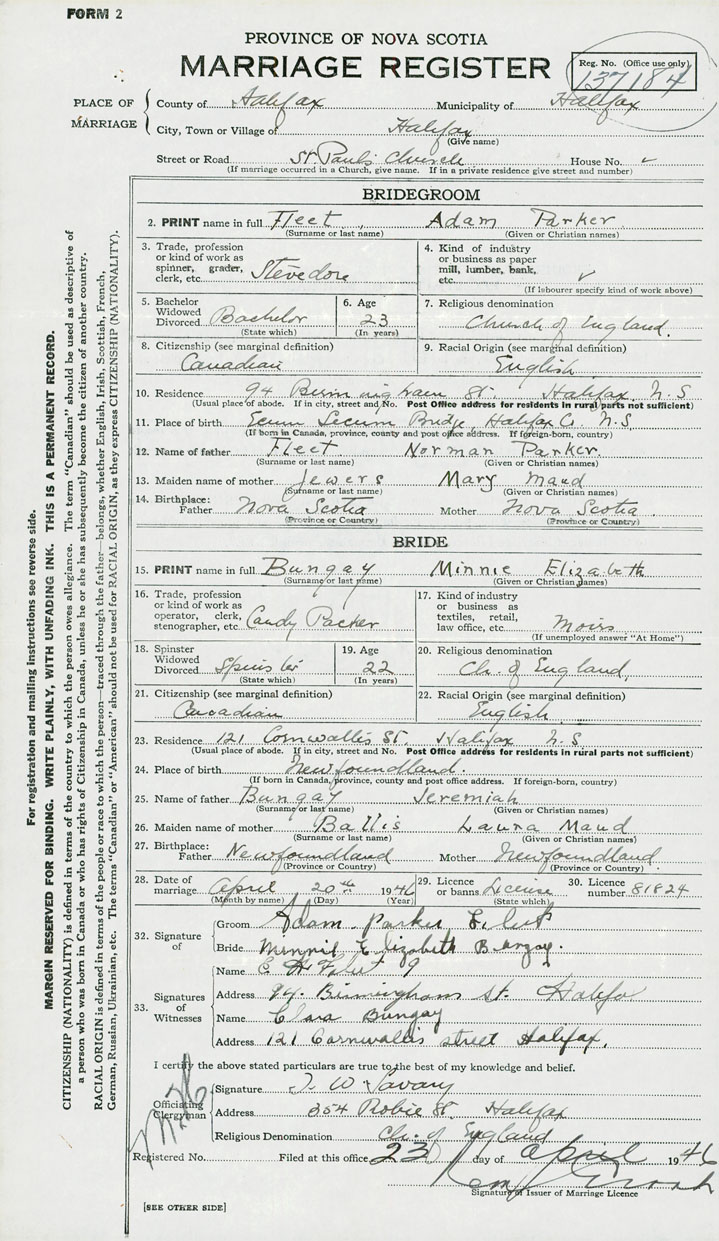 FORM 2
PROVINCE OF NOVA SCOTIA
MARRIAGE REGISTER
Reg. No. (Office use only)
137184
PLACE OF MARRIAGE
County of Halifax Municipality of Halifax
City, Town or Village of Halifax
(Give name)
Street or Road St. Paul's Church House No. ✓
(If marriage occurred in a Church, give name. If in a private residence give street and number)
BRIDEGROOM
2. PRINT name in full Fleet Adam Parker.
(Surname or last name) (Given or Christian names)
3. Trade, profession or kind of work as spinner, grader, clerk, etc. Stevedore
4. Kind of industry or business as paper mill, lumber, bank, etc. ✓
(If labourer specify kind of work above)
5. Bachelor Widowed Divorced Bachelor
(State which)
6. Age 23
(In years)
7. Religious denomination
Church of England.
8. Citizenship (see marginal definition)
Canadian
9. Racial Origin (see marginal definition)
English.
10. Residence 94 St. Halifax, N.S
(Usual place of abode. If in city, street and No. Post Office address for residents in rural parts not sufficient)
11. Place of birth Ecum Secum Bridge, Halifax Co. N.S.
(If born in Canada, province, county and post office address. If foreign-born, country)
12. Name of father Fleet Norman Parker.
(Surname or last name) (Given or Christian names)
13. Maiden name of mother Jewers Mary Maud
(Surname or last name) (Given or Christian names)
14. Birthplace:
Father Nova Scotia Mother Nova Scotia
(Province or Country) (Province or Country)
BRIDE
15. PRINT name in full Bungay Minnie Elizabeth
(Surname or last name) (Given or Christian names)
16. Trade, profession or kind of work as operator, clerk, stenographer, etc. Candy Packer
17. Kind of industry or business as textiles, retail, law office, etc. Moirs
(If unemployed answer "At Home")
18. Spinster Widowed Divorced Spinster
(State which)
19. Age 22
(In years)
20. Religious denomination
Ch. of England.
21. Citizenship (see marginal definition)
Canadian
22. Racial Origin (see marginal definition)
English.
23. Residence 121 Cornwallis St. Halifax N.S
(Usual place of abode. If in city, street and No. Post Office address for residents in rural parts not sufficient)
24. Place of birth Newfoundland.
(If born in Canada, province, county and post office address. If foreign-born, country)
25. Name of father Bungay Jeremiah
(Surname or last name) (Given or Christian names)
26. Maiden name of mother Laura Maud
(Surname or last name) (Given or Christian names)
27. Birthplace:
Father Newfoundland Mother Newfoundland.
(Province or Country) (Province or Country)
28. Date of marriage April 20th 1946
(Month by name) (Day) (Year)
29. Licence or banns License
(State which)
30. Licence number 81824
32. Signature of
Groom Adam Parker Fleet
Bride Minnie Elizabeth Bungay.
33. Signatures of Witnesses
Name C. H Fleet
Address 94. Birmingham St. Halifax
Name Clara Bungay
Address 121 Cornwallis street Halifax.
I certify the above stated particulars are true to the best of my knowledge and belief.
Officiating Clergyman
Signature T. W Savary
Address 354 Robie St. Halifax
Religious Denomination Ch. of England
Registered No. Filed at this office 23 day of April 1946
Signature of Issuer of Marriage Licence
[SEE OTHER SIDE]
For registration and mailing instructions see reverse side.
MARGIN RESERVED FOR BINDING. WRITE PLAINLY, WITH UNFADING INK. THIS IS A PERMANENT RECORD.
CITIZENSHIP (NATIONALITY) is defined in terms of the country to which the person owes allegiance. The term "Canadian" should be used as descriptive of
a person who was born in Canada or who has rights of Citizenship in Canada, unless he or she has subsequently become the citizen of another country.
RACIAL ORIGIN is defined in terms of the people or race to which the person—traced through the father—belongs, whether English, Irish, Scottish, French,
German, Russian, Ukrainian, etc. The terms "Canadian" or "American" should not be used for RACIAL ORIGIN, as they express CITIZENSHIP (NATIONALITY).